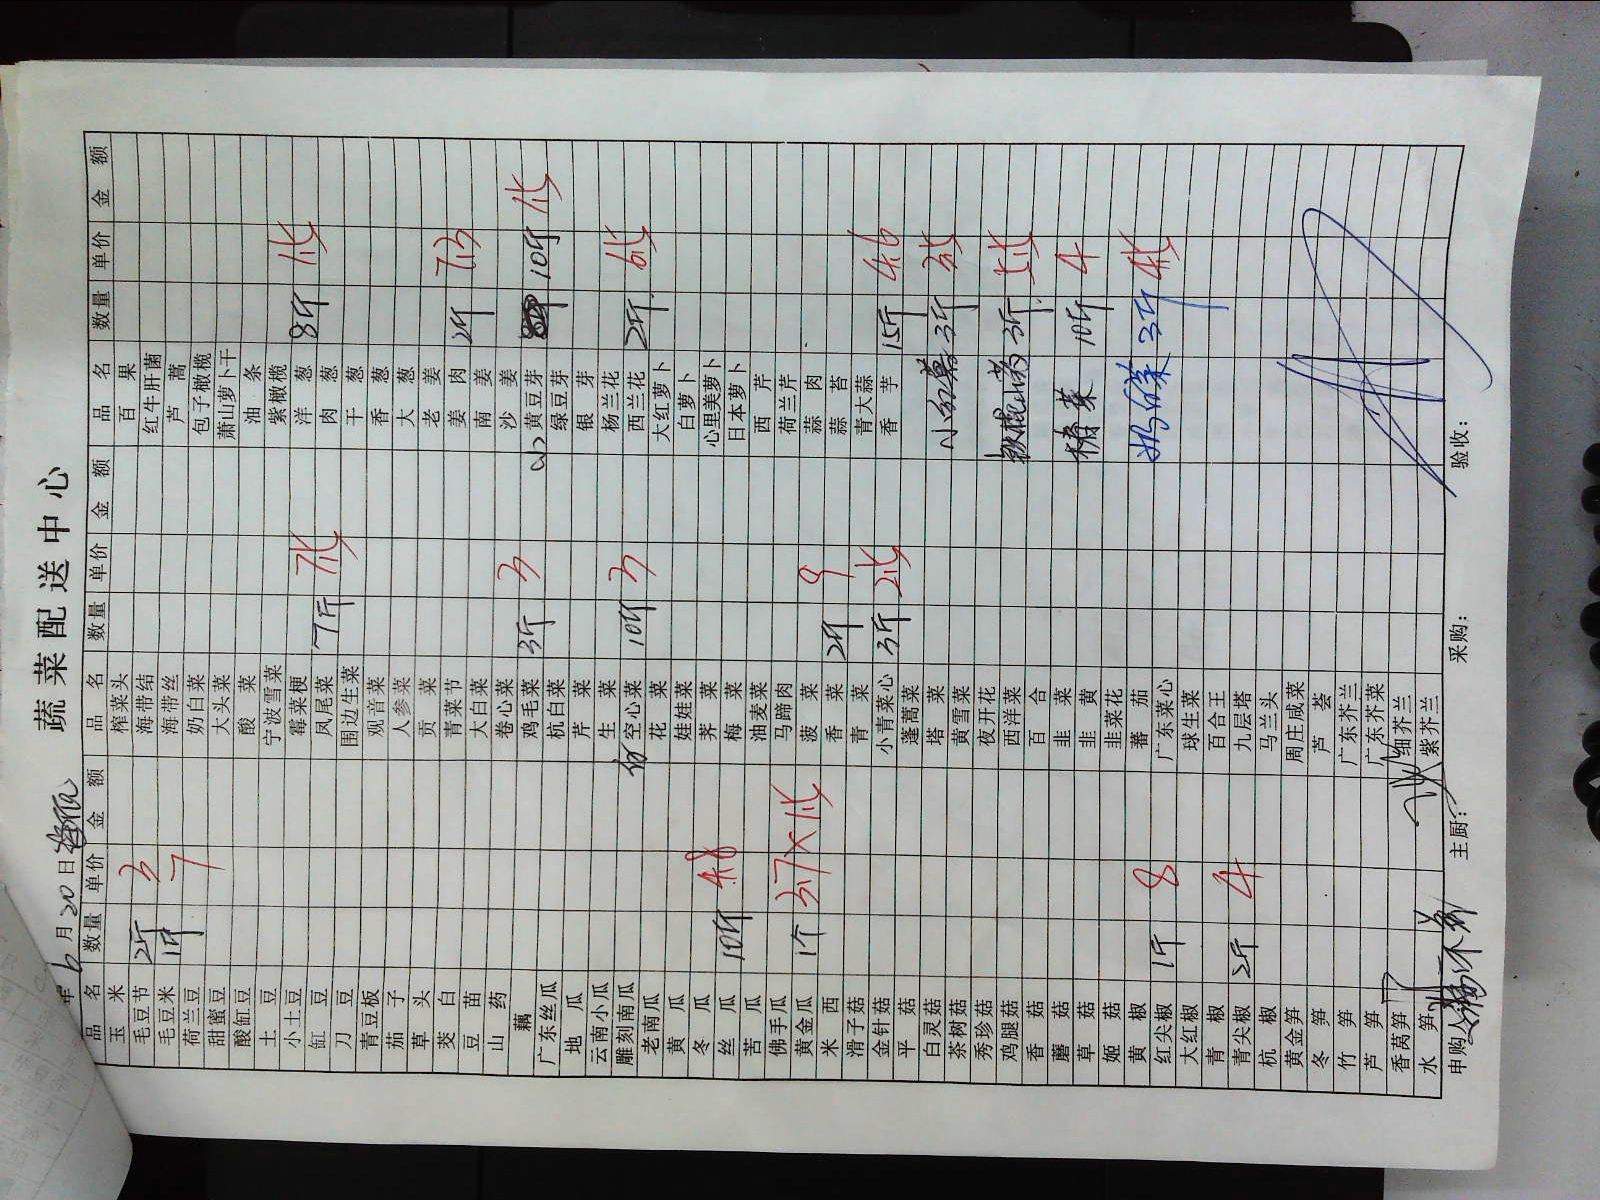 蔬菜配送中心
年 6 月 20 日
品名 数量 单价 金额 品名 数量 单价 金额 品名 数量 单价 金额
玉米 榨菜头 百果
毛豆节 2斤 3 海带结 红牛肝菌
毛豆米 1斤 7 海带丝 芦蒿
荷兰豆 奶白菜 包子橄榄
甜蜜豆 大头菜 萧山萝卜干
酸缸豆 酸菜 油条
土豆 宁波雪菜 紫橄榄
小土豆 霉菜梗 洋葱 8斤
缸豆 凤尾菜 7斤 肉葱
刀豆 围边生菜 干葱
青豆板 观音菜 香葱
茄子 人参菜 大葱
草头 贡菜 老姜
茭白 青菜节 姜肉 2斤
豆苗 大白菜 南姜
山药 卷心菜 沙姜
藕 鸡毛菜 3斤 3 黄豆芽 10斤
广东丝瓜 杭白菜 绿豆芽
地瓜 芹菜 银芽
云南小瓜 生菜 杨兰花
雕刻南瓜 空心菜 10斤 3 西兰花 2斤
老南瓜 花菜 大红萝卜
黄瓜 娃娃菜 白萝卜
冬瓜 荠菜 心里美萝卜
丝瓜 10斤 4.8 梅菜 日本萝卜
苦瓜 油麦菜 西芹
佛手瓜 马蹄肉 荷兰芹
黄金瓜 1个 菠菜 蒜肉
米西 香菜 2斤 9 蒜苔
滑子菇 青菜 青大蒜
金针菇 小青菜心 3斤 香芋 15斤 4.6
平菇 蓬蒿菜
白灵菇 塔菜 3斤
茶树菇 黄雪菜
秀珍菇 夜开花
鸡腿菇 西洋菜 铁棍山药 3斤
香菇 百合
蘑菇 韭菜 10斤 4
草菇 韭黄
姬菇 韭菜花
黄椒 蕃茄 3斤
红尖椒 1斤 8 广东菜心
大红椒 球生菜
青椒 百合王
青尖椒 2斤 4 九层塔
杭椒 马兰头
黄金笋 周庄咸菜
冬笋 芦荟
竹笋 广东芥兰
芦笋 广东芥菜
香莴笋 细芥兰
水笋 紫芥兰
申购人: 主厨: 采购: 验收: